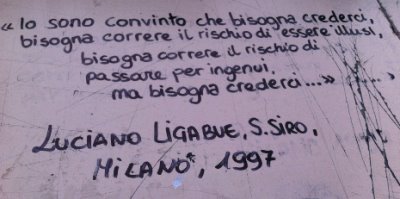 «Io sono convinto che bisogna crederci,
bisogna correre il rischio di essere illusi,
bisogna correre il rischio di
passare per ingenui,
ma bisogna crederci...»
LUCIANO LIGABUE, S.SIRO,
MILANO, 1997